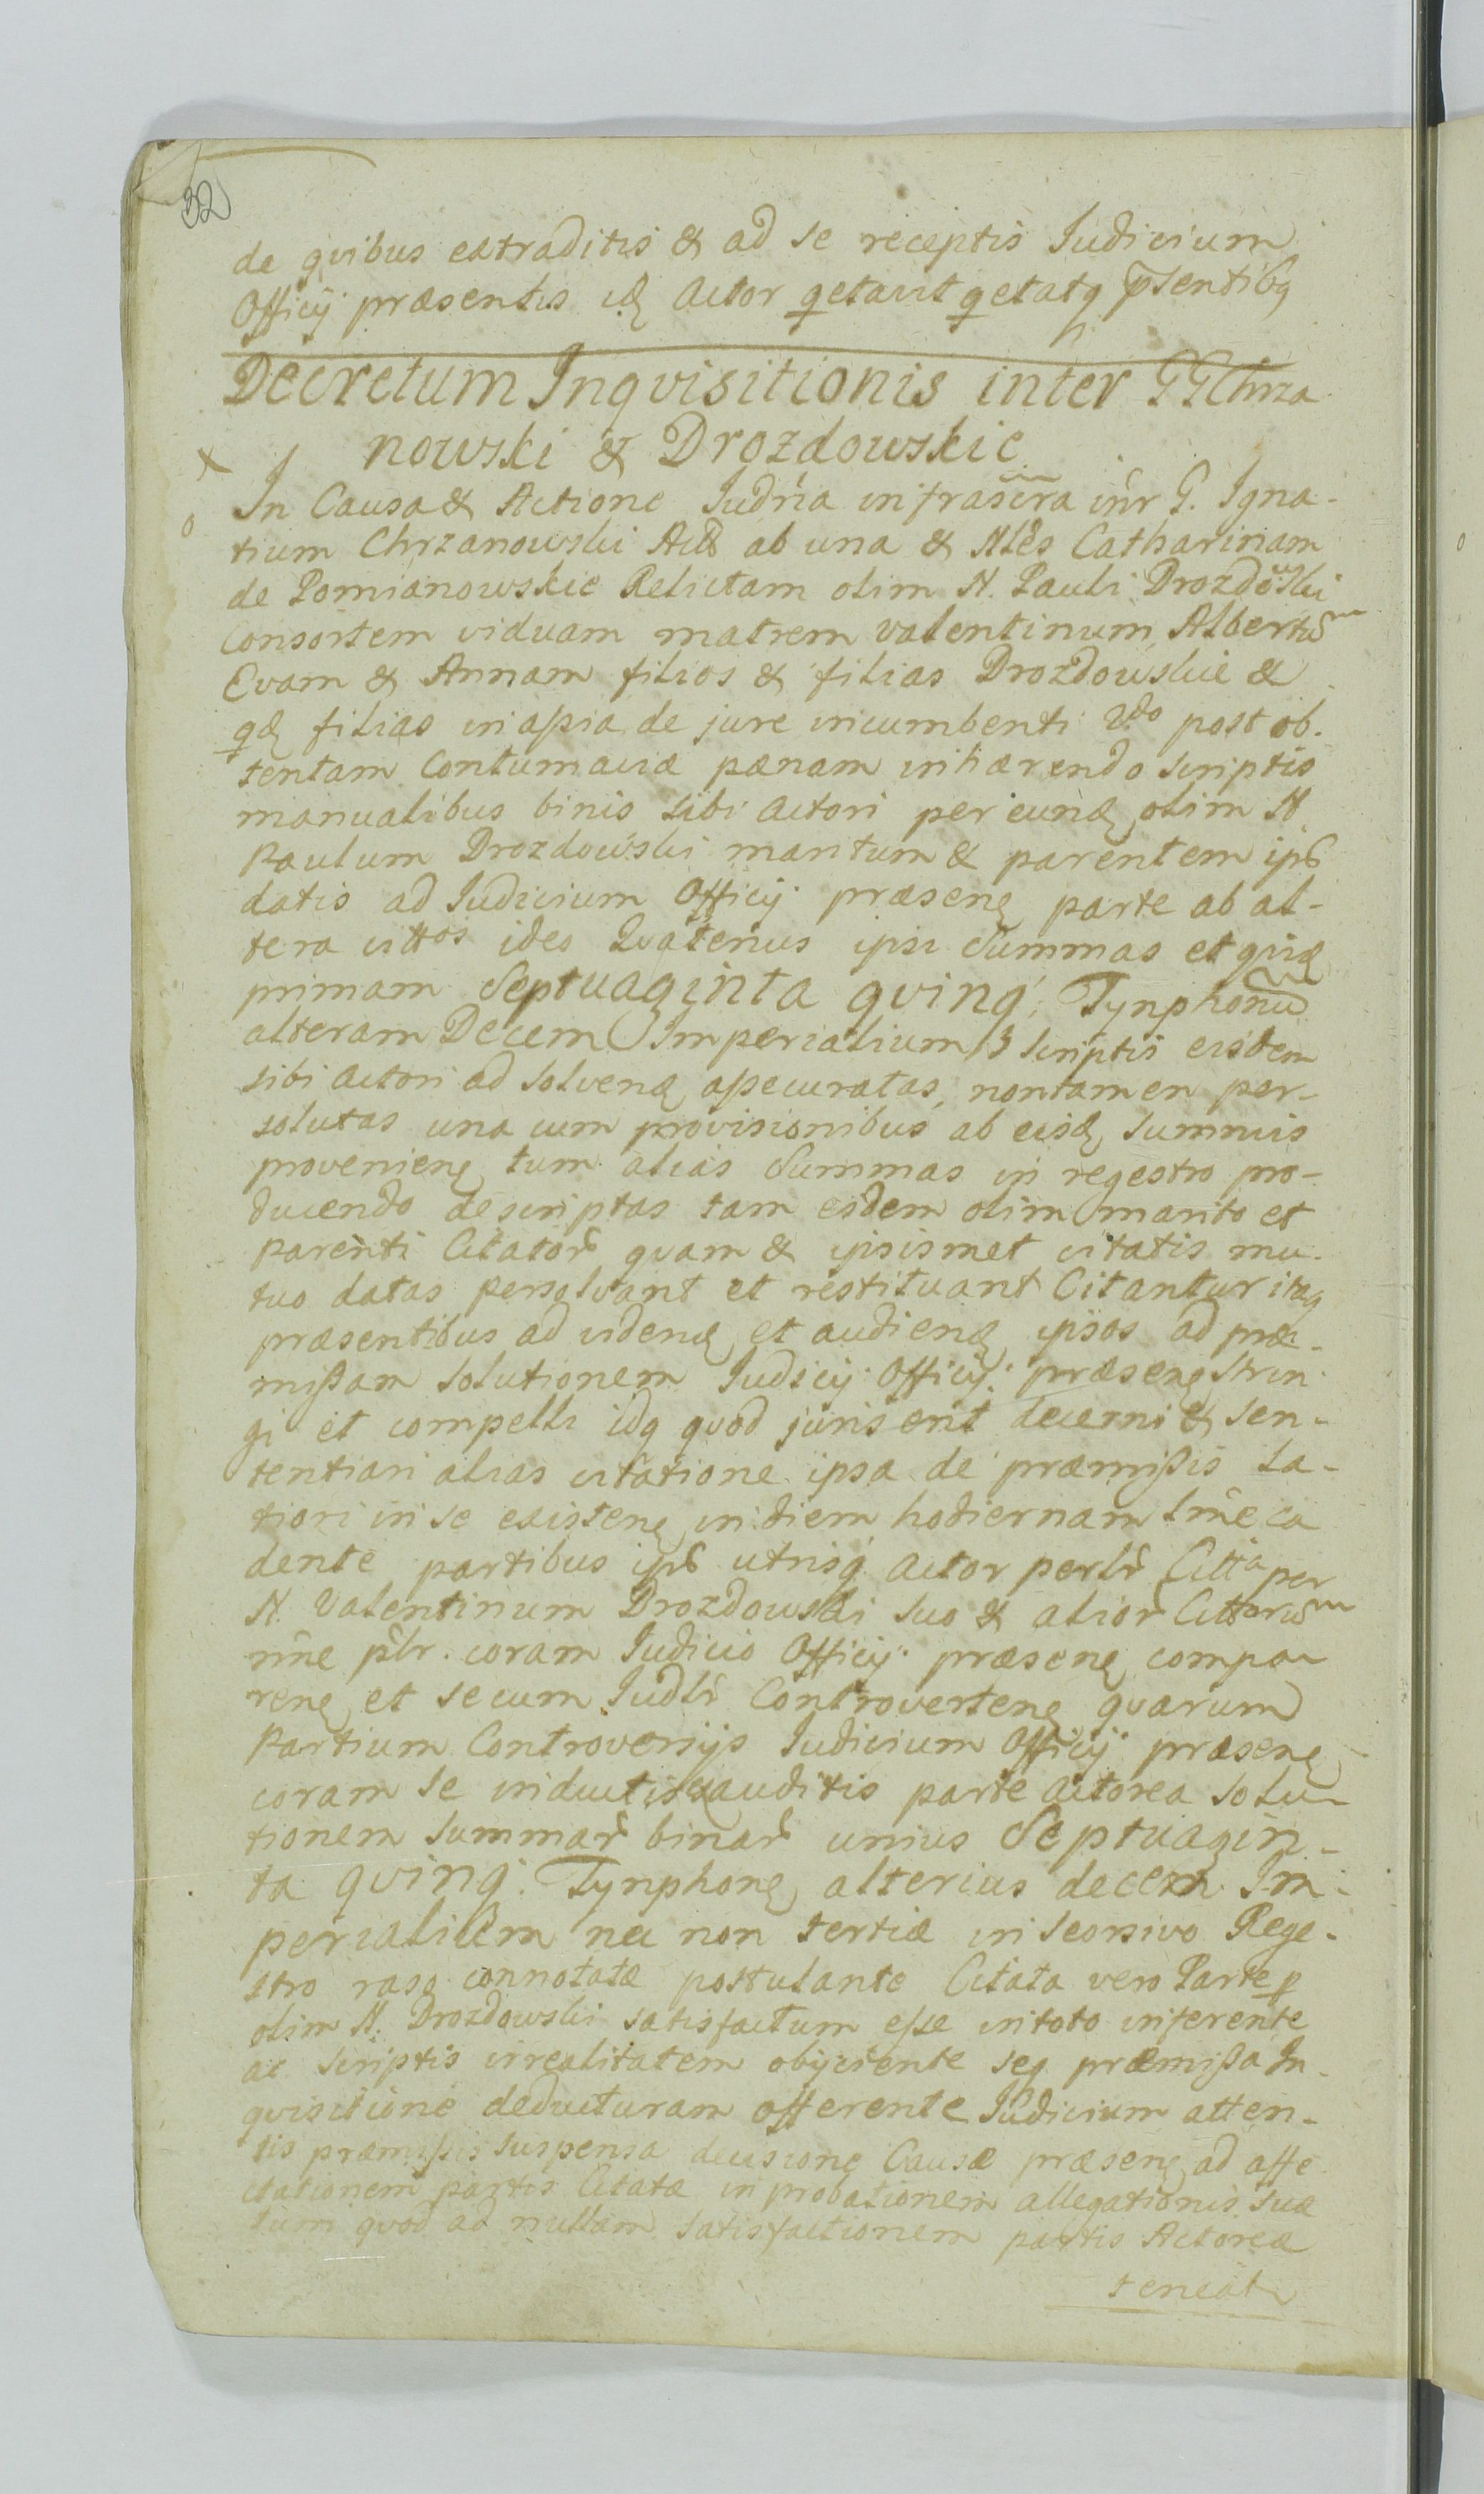 32
de qvibus extraditis & ad se receptis Iudicium
Officÿ præsentis idq Actor qetavit qetatq pſsentibq
Decretum Inqvisitionis inter GG Chrza
nowski & Drozdowskie
In Causa & Actione Iudria infrascra inr G. Igna-
tium Chrzanowski Acto ab una & Nles Catharinam
de Pomianowskie Relictam olim N. Pauli Drozdowski
Consortem viduam matrem Valentinum, Albertum
Evam & Annam filios & filias Drozdowskie &
qd filias in assia de jure incumbenti Vdo post ob-
tentam Contumaciæ pænam inhærendo scriptis
manualibus binis sibi Actori per eund olim N.
Paulum Drozdowski maritum & parentem ips
datis ad Iudicium Officÿ præsens parte ab al-
tera cittos ideo Qvatenus ipsi Summas et qvid
primam Septuaginta qvinq; Tynphonum
alteram Decem Imperialium scriptis eisdem
sibi Actori ad solvend assecuratas, non tamen per-
solutas una cum provisionibus ab eisd summis
provenien tum alias Summas in regestro pro-
ducendo descriptas tam eidem olim marito et
parenti Citator qvam & ipsismet citatis mu-
tuo datas persolvant et restituant Citantur itaq
præsentibus ad vidend et audiend ipsos ad præ-
missam solutionem Iudicÿ Officÿ præsen strin-
gi et compelli idq qvod juris erit decerni & sen-
tentiari alias citatione ipsa de præmissis la-
tiori in se existen in diem hodiernam lme ca
dente partibus ips utrisq Actor perlr Citta per
N. Valentinum Drozdowski suo & alior Cittorum
nne plr. coram Iudicio Officÿ præsen compa-
ren et secum Iudlr Controverten qvarum
Partium Controversÿs Iudicium Officÿ præsen
coram se inductis & auditis parte Actorea solu-
tionem summar binar unius Septuagin-
ta qvinq. Tynphon alterius decem Im-
perialium nec non tertiæ in seorsivo Rege-
stro raso connotatæ postulante Citata vero Parte p
olim N. Drozdowski satisfactum esse in toto inferente
ac scriptis irrealitatem obÿciente seq præmissa In-
qvisitione deducturam offerente Iudicium atten-
tis præmissis suspensa decisione Causæ præsen ad affe
ctationem partis Citatæ in probationem allegationis suæ
tum qvod ad nullam satisfactionem partis Actoreæ
teneat